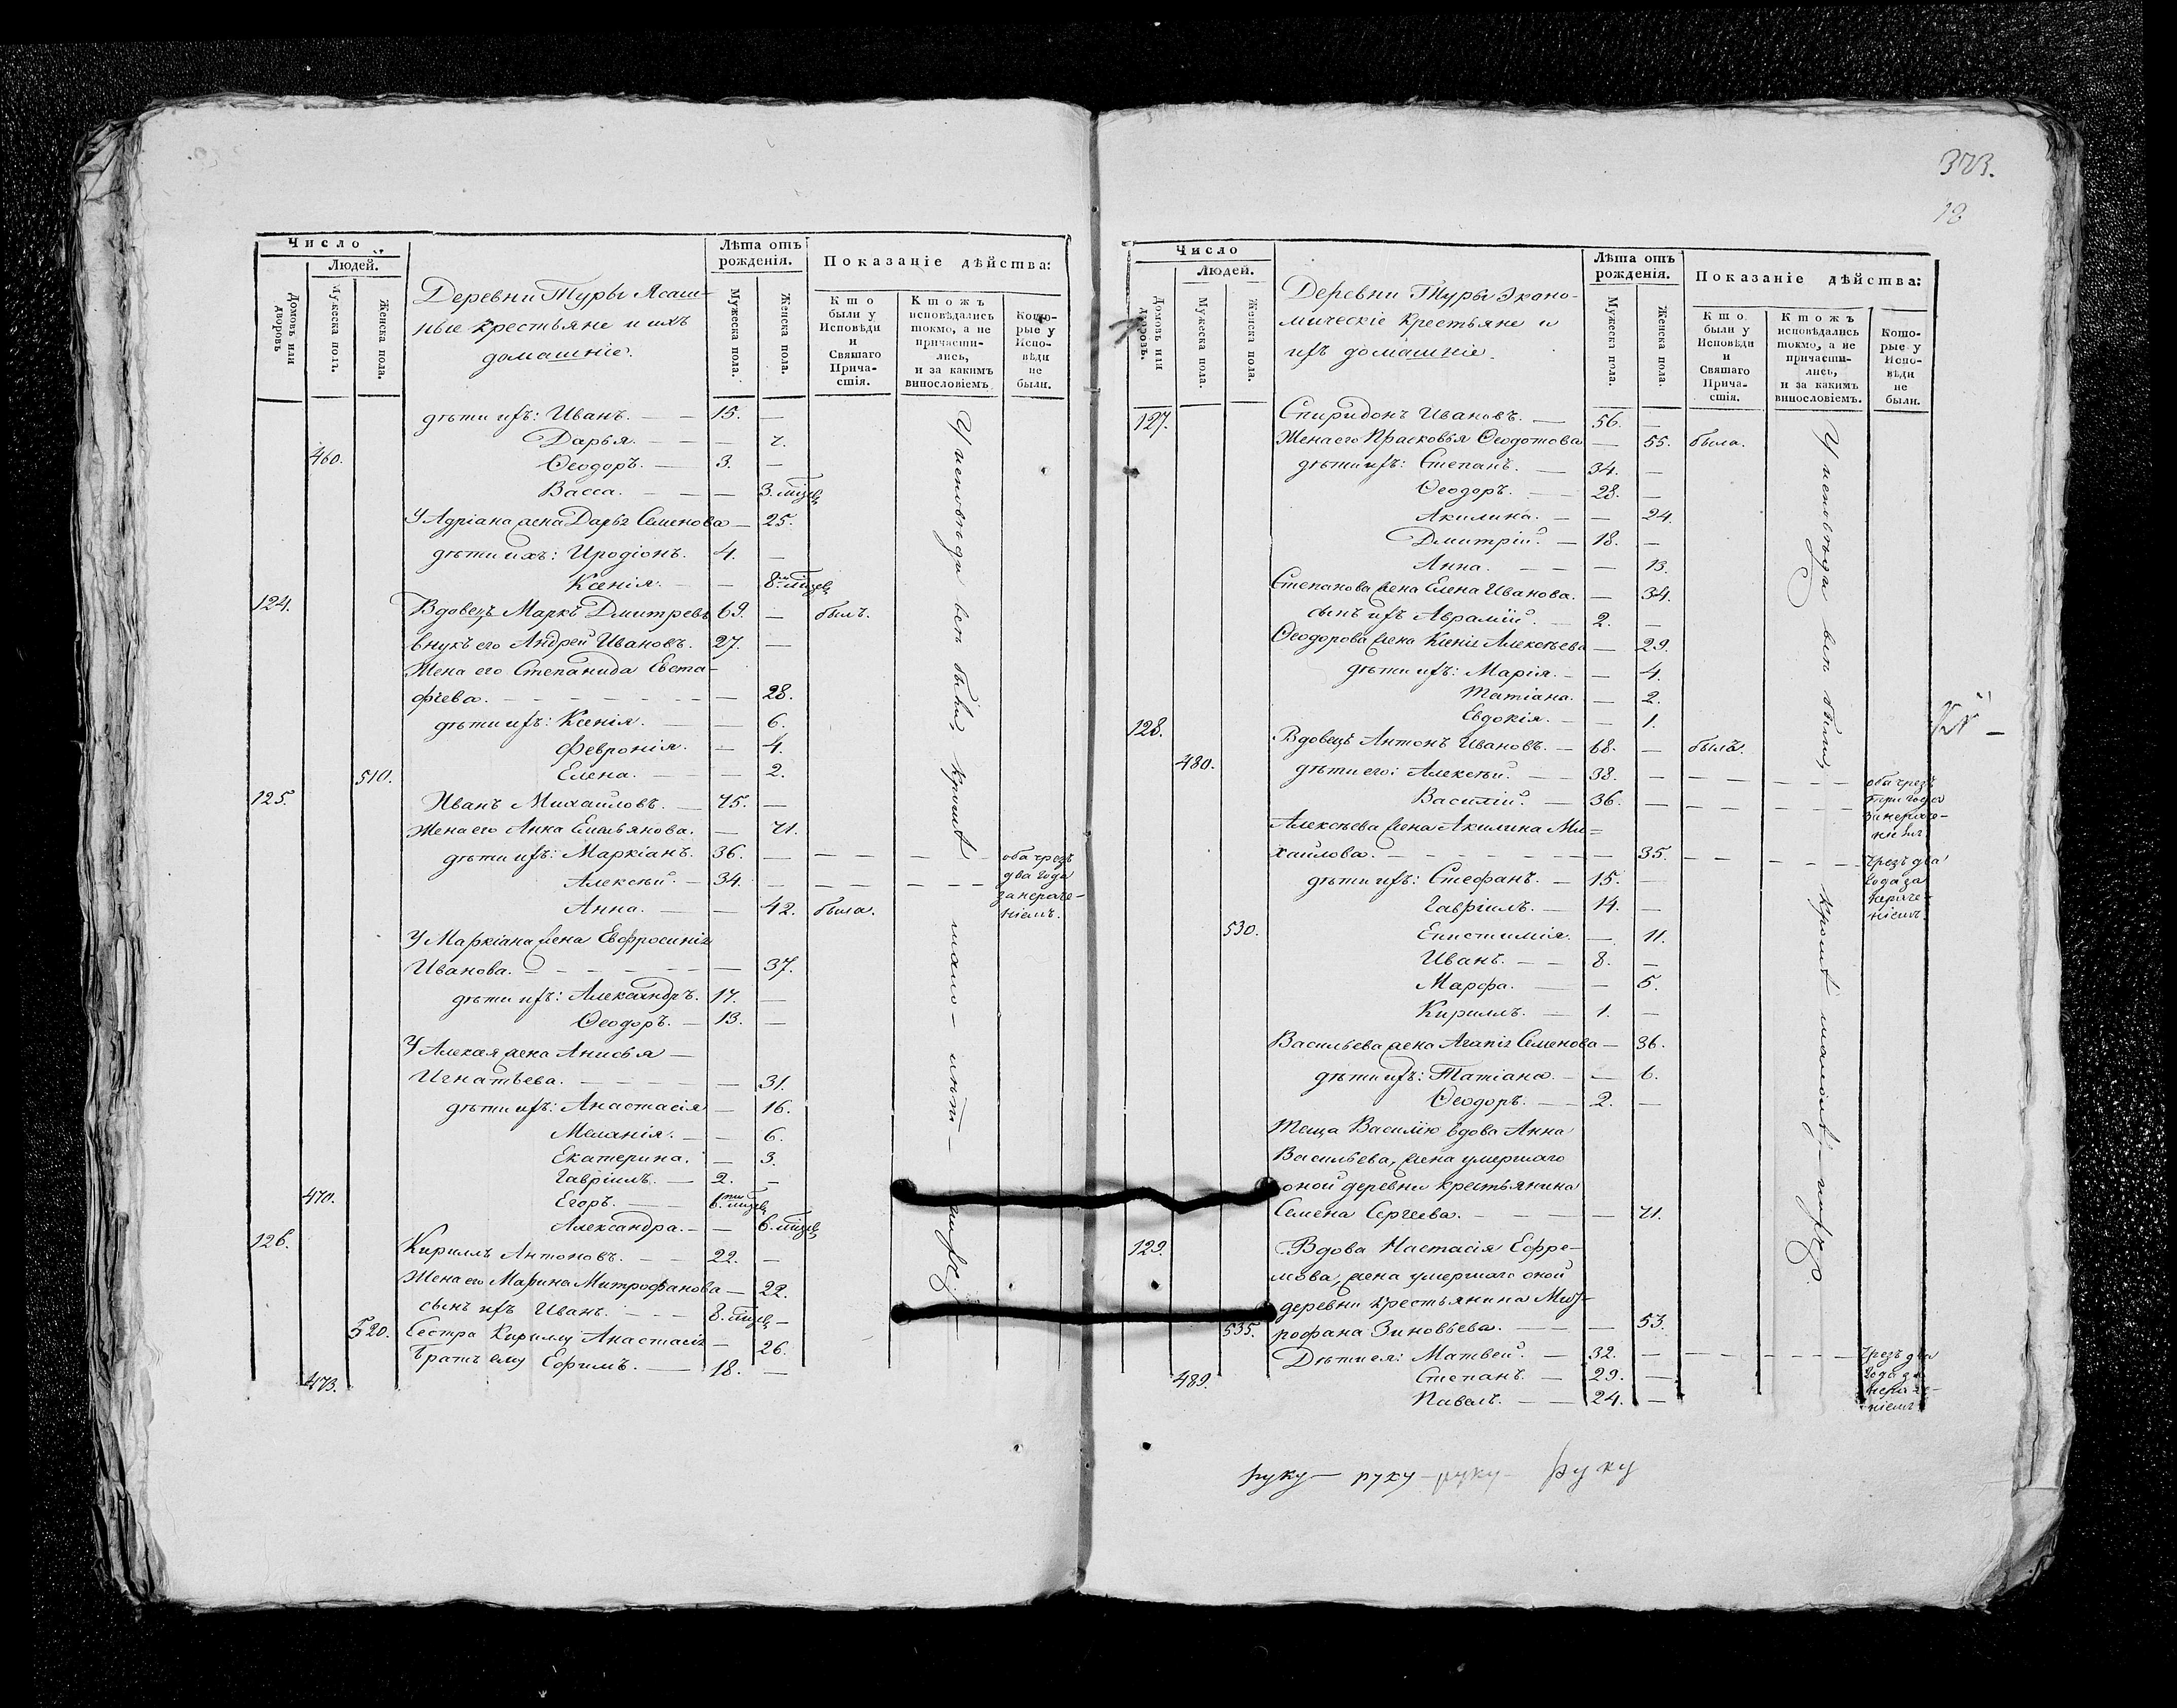 Число
Людей.
Домовъ или дворовъ
Мужеска пола.
Женска пола.
Деревни Туры Ясаш-
ные крестьяне и ихъ
домашніе.
Лѣта отъ рожденія.
Мужеска пола.
Женска пола.
Показаніе дѣйства:
Кто были у Исповѣди и Святаго Причастія.
Ктожъ исповѣдались токмо, а не причастились, и за какимъ винословіемъ
Которые у Исповѣди не были.
дѣти ихъ: Иванъ. — 15. —
Дарья. — — 7.
460. Ѳеодоръ. — 3. —
Васса. — — 3. мѣсец
У Адріана жена Дарья Семенова — 25.
дѣти ихъ: Иродіонъ. 4. —
Ксенія. — — 8. мѣсец
124. Вдовецъ Маркъ Дмитревъ 69. — былъ.
внукъ его Андрей Ивановъ. 27. —
Жена его Степанида Евста-
фіева. — — 28.
дѣти ихъ: Ксенія. — — 6.
Февронія. — 4.
Елена. — — 2.
510.
125. Иванъ Михайловъ. — 75. —
Жена его Анна Емельянова. — 71.
дѣти ихъ: Маркіанъ. 36. — — — — — оба чрезъ
Алексѣй. — 34. — — — — — два года
за нераче-
Анна. — — 42. была. ніемъ.
У Маркіана жена Евфросинія
Иванова. — — 37.
дѣти ихъ: Александръ. 17. —
Ѳеодоръ. — 13. —
У Алексѣя жена Анисья —
Игнатьева. — — 31.
дѣти ихъ: Анастасія — 16.
Меланія. — — 6.
Екатерина. — 3.
Гавріилъ. — 2. —
470. Егоръ. — 6. мѣсец
Александра. — — 6. мѣсец
126. Кириллъ Антоновъ. — 22. —
Жена его Марина Митрофанова — 22.
сынъ ихъ Иванъ. — 8. мѣсец —
520. Сестра Кириллу Анастасія — 26.
Братъ ему Ефимъ. — 18. —
473.
У исповѣди всѣ были, кромѣ мало-
373.
Число
Людей.
Домовъ или дворовъ.
Мужеска пола.
Женска пола.
Деревни Туры Эконо-
мическіе Крестьяне и
ихъ домашніе.
Лѣта отъ рожденія.
Мужеска пола.
Женска пола.
Показаніе дѣйства:
Кто были у Исповѣди и Святаго Причастія.
Ктожъ исповѣдались токмо, а не причастились, и за какимъ винословіемъ.
Которые у Исповѣди не были.
127. Спиридонъ Ивановъ. — 56. —
Жена его Прасковья Ѳеодотова — 55. была.
дѣти ихъ: Степанъ. — 34. —
Ѳеодоръ. — 28. —
Акилина. — — 24.
Дмитрій. — 18. —
Анна. — — 13.
Степанова жена Елена Иванова. — 34.
сынъ ихъ Аврамій. — 2. —
Ѳеодорова жена Ксенія Алексѣева — 29.
дѣти ихъ: Марія. — — 4.
Татіана. — 2.
Евдокія. — — 1.
128. Вдовецъ Антонъ Ивановъ. — 68. — былъ.
480. дѣти его: Алексѣй. — 38. — — — — — оба чрезъ
Василій. — 36. — — — — — три года
за нераче-
ніемъ
Алексѣева жена Акилина Ми=
хайлова. — — 35. — — — — чрезъ два
дѣти ихъ: Стефанъ. — 15. — года за
Гавріилъ. — 14. — нераче-
ніемъ
530. Епистимія. — 11.
Иванъ. — 8. —
Марфа. — — 5.
Кириллъ. — 1. —
Васильева жена Агапія Семенова — 36.
дѣти ихъ: Татіана. — — 6.
Ѳеодоръ. — 2. —
Теща Василію вдова Анна
Васильева, жена умершаго
оной деревни крестьянина
Семена Сергеева. — — 71.
129. Вдова Настасія Ефре-
мова, жена умершаго оной
деревни крестьянина Мит-
535. рофана Зиновьева. — — 53.
Дѣти ея: Матвей. — 32. — — — — — Чрезъ два
489. Степанъ. — 29. — года за
Павелъ. — 24. — нераче-
ніемъ
У исповѣди всѣ были, кромѣ малолѣт-
руку — руку — руку — руку